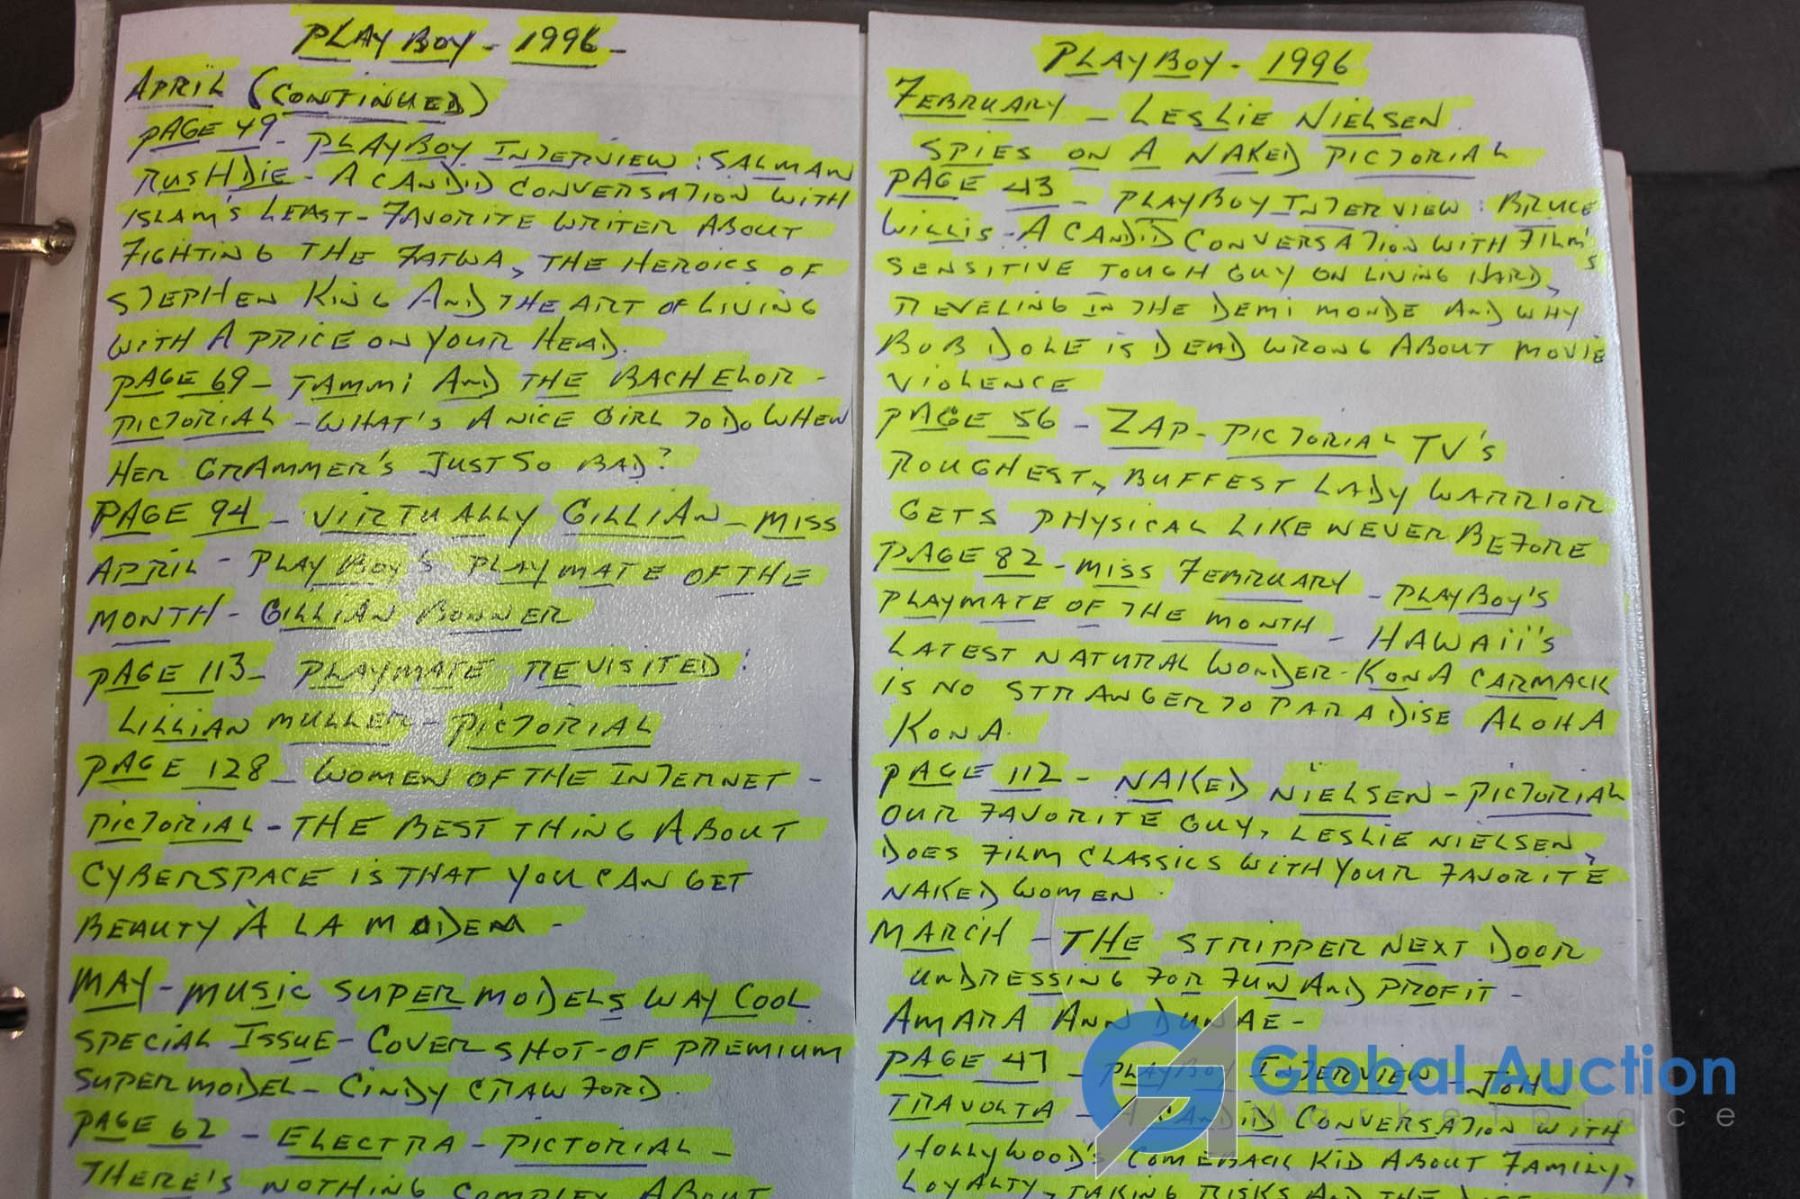 PLAYBOY - 1996 -
APRIL (CONTINUED)
PAGE 49 - PLAYBOY INTERVIEW : SALMAN
RUSHDIE - A CANDID CONVERSATION WITH
ISLAM'S LEAST-FAVORITE WRITER ABOUT
FIGHTING THE FATWA, THE HEROICS OF
STEPHEN KING AND THE ART OF LIVING
WITH A PRICE ON YOUR HEAD.
PAGE 69 - TAMMI AND THE BACHELOR -
PICTORIAL - WHAT'S A NICE GIRL TO DO WHEN
HER GRAMMER'S JUST SO BAD?
PAGE 94 - VIRTUALLY GILLIAN - MISS
APRIL - PLAYBOY'S PLAYMATE OF THE
MONTH - GILLIAN BONNER
PAGE 113 - PLAYMATE REVISITED :
LILLIAN MULLER - PICTORIAL
PAGE 128 - WOMEN OF THE INTERNET -
PICTORIAL - THE BEST THING ABOUT
CYBERSPACE IS THAT YOU CAN GET
BEAUTY À LA MODEM -
MAY - MUSIC SUPER MODELS WAY COOL
SPECIAL ISSUE - COVER SHOT - OF PREMIUM
SUPERMODEL - CINDY CRAWFORD.
PAGE 62 - ELECTRA - PICTORIAL -
THERE'S NOTHING COMPLEX ABOUT
PLAYBOY - 1996
FEBRUARY - LESLIE NIELSEN
SPIES ON A NAKED PICTORIAL
PAGE 43 - PLAYBOY INTERVIEW : BRUCE
WILLIS - A CANDID CONVERSATION WITH FILM'S
SENSITIVE TOUGH GUY ON LIVING HARD,
REVELING IN THE DEMI MONDE AND WHY
BOB DOLE IS DEAD WRONG ABOUT MOVIE
VIOLENCE
PAGE 56 - ZAP - PICTORIAL TV'S
ROUGHEST, BUFFEST LADY WARRIOR
GETS PHYSICAL LIKE NEVER BEFORE
PAGE 82 - MISS FEBRUARY - PLAYBOY'S
PLAYMATE OF THE MONTH - HAWAII'S
LATEST NATURAL WONDER - KONA CARMACK
IS NO STRANGER TO PARADISE ALOHA
KONA.
PAGE 112 - NAKED NIELSEN - PICTORIAL
OUR FAVORITE GUY, LESLIE NIELSEN,
DOES FILM CLASSICS WITH YOUR FAVORITE
NAKED WOMEN.
MARCH - THE STRIPPER NEXT DOOR
UNDRESSING FOR FUN AND PROFIT -
AMARA ANN DUNAE -
PAGE 47 - PLAYBOY INTERVIEW - JOHN
TRAVOLTA - A CANDID CONVERSATION WITH
HOLLYWOOD'S COMEBACK KID ABOUT FAMILY,
LOYALTY, TAKING RISKS AND THE
Global Auction
Marketplace